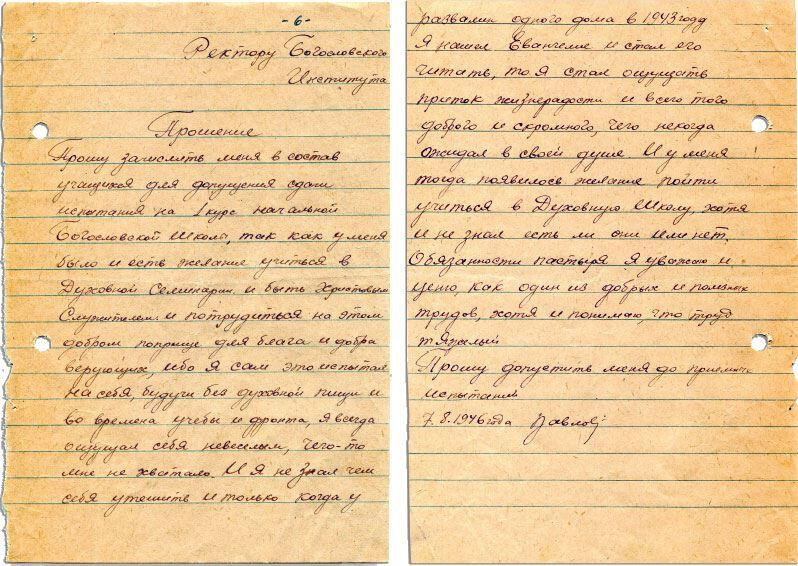 -6-
Ректору Богословского
Института
Прошение
Прошу зачислить меня в состав
учащихся для допущения сдачи
испытания на I курс начальной
Богословской Школы, так как у меня
было и есть желание учиться в
Духовной Семинарии и быть Христовым
Служителем и потрудиться на этом
добром поприще для блага и добра
верующих, ибо я сам это испытал
на себя, будучи без духовной пищи и
во времена учебы и фронта, я всегда
ощущал себя невеселым, чего-то
мне не хватало. И я не знал чем
себя утешить и только когда у
развалин одного дома в 1943 году
Я нашел Евангелие и стал его
читать, то я стал ощущать
приток жизнерадости и всего того
доброго и скромного, чего некогда
ожидал в своей душе. И у меня
тогда появилось желание пойти
учиться в Духовную Школу, хотя
и не знал есть ли они или нет.
Обязанности пастыря Я уважаю и
ценю, как один из добрых и полезных
трудов, хотя и понимаю, что труд
тяжелый
Прошу допустить меня до приемных
испытаний
7.8.1946 года Павлов